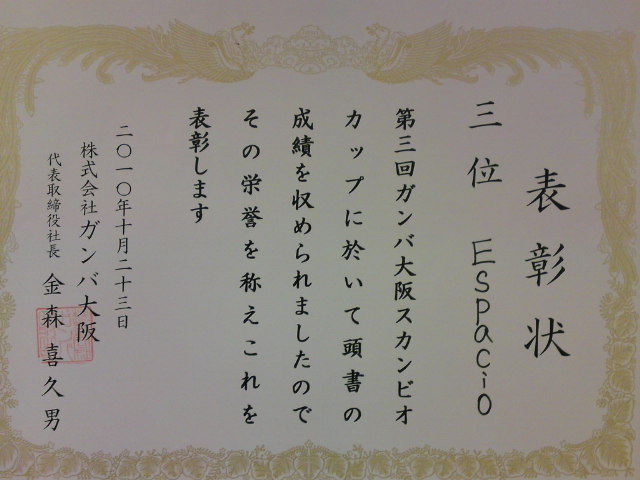 表彰状
三位 Espacio
第三回ガンバ大阪スカンビオ
カップに於いて頭書の
成績を収められましたので
その栄誉を称えこれを
表彰します
二〇一〇年十月二十三日
株式会社ガンバ大阪
代表取締役社長 金森喜久男